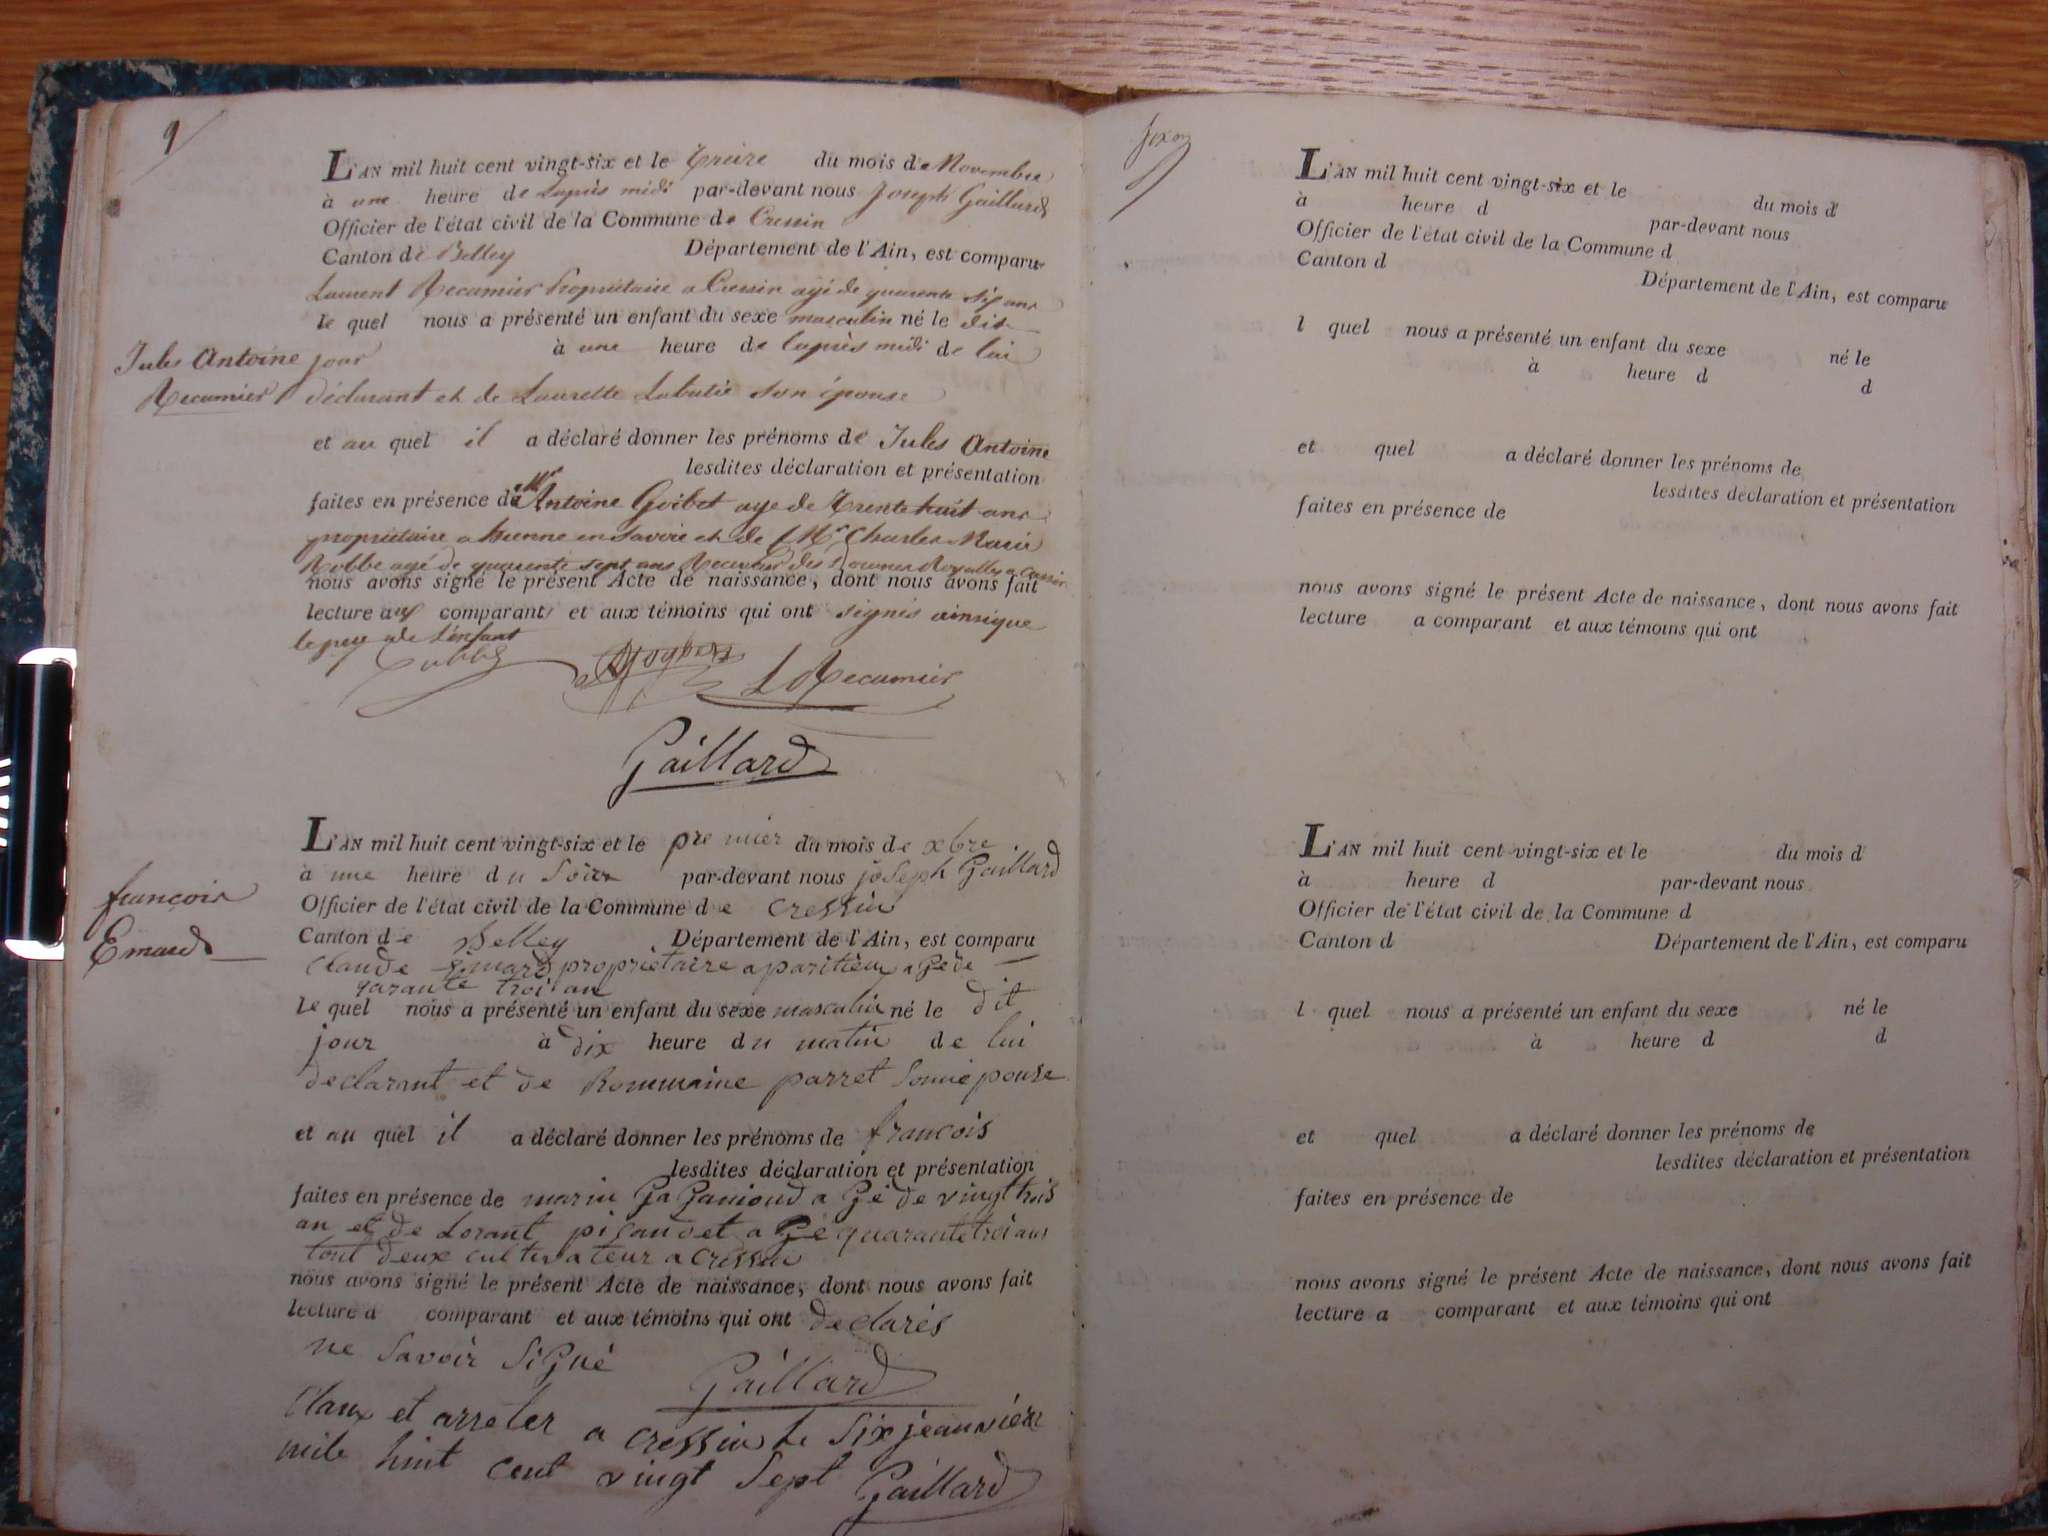 9
L'AN mil huit cent vingt-six et le treize du mois de Novembre
à une heure de laprès midi par-devant nous Joseph Gaillard
Officier de l'état civil de la Commune de Cressin
Canton de Belley Département de l'Ain, est comparu
Laurent Recamier Propriétaire a Cressin agé de quarente six ans
le quel nous a présenté un enfant du sexe masculin né le dit
Jules Antoine jour à une heure de laprès midi de lui
Recamier déclarant et de Laurette son épouse
et au quel il a déclaré donner les prénoms de Jules Antoine
lesdites déclaration et présentation
faites en présence de Mr Antoine Goibet age de Trente huit ans
propriétaire a hienne en Savoie et de Mr Charles Marie
Robbe agé de quarente sept ans Receveur des Douanes Royalles a Cressin
nous avons signé le présent Acte de naissance, dont nous avons fait
lecture aux comparants et aux témoins qui ont signés ainsique
le pere de l'enfant
Robbe L Recamier
Gaillard
L'AN mil huit cent vingt-six et le premier du mois de xbre
à une heure du Soir par-devant nous joseph Gaillard
françois
Officier de l'état civil de la Commune de cressin
Emard
Canton de Belley Département de l'Ain, est comparu
claude Emard propriétaire a paritieu a Gé de
qarante troi an
le quel nous a présenté un enfant du sexe masculin né le dit
jour à dix heure du matin de lui
declarant et de Rommaine parret Sonnépouse
et au quel il a déclaré donner les prénoms de francois
lesdites déclaration et présentation
faites en présence de marin a Gé de vingt trois
an et de Lorant pigaudet a Gé quarante troi ans
tout deux cultivateur a cressin
nous avons signé le présent Acte de naissance, dont nous avons fait
lecture a comparant et aux témoins qui ont declarés
ne Savoir SiGné
Gaillard
Claux et arreter a cressin le Six jeanvier
mile huit cent vingt Sept Gaillard
L'AN mil huit cent vingt-six et le du mois d
à heure d par-devant nous
Officier de l'état civil de la Commune d
Canton d Département de l'Ain, est comparu
l quel nous a présenté un enfant du sexe né le
à heure d d
et quel a déclaré donner les prénoms de
lesdites déclaration et présentation
faites en présence de
nous avons signé le présent Acte de naissance, dont nous avons fait
lecture a comparant et aux témoins qui ont
L'AN mil huit cent vingt-six et le du mois d
à heure d par-devant nous
Officier de l'état civil de la Commune d
Canton d Département de l'Ain, est comparu
l quel nous a présenté un enfant du sexe né le
à heure d d
et quel a déclaré donner les prénoms de
lesdites déclaration et présentation
faites en présence de
nous avons signé le présent Acte de naissance, dont nous avons fait
lecture a comparant et aux témoins qui ont